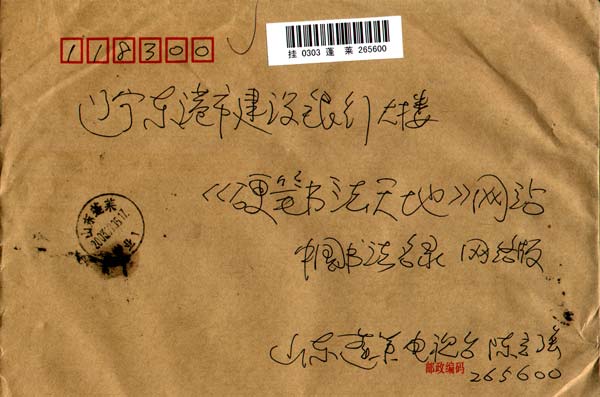 118300
挂 0303 蓬 莱 265600
辽宁东港市建设银行大楼
《硬笔书法天地》网站
山东蓬莱
中国书法名录 网络版
山东蓬莱电视台 陈
邮政编码
265600